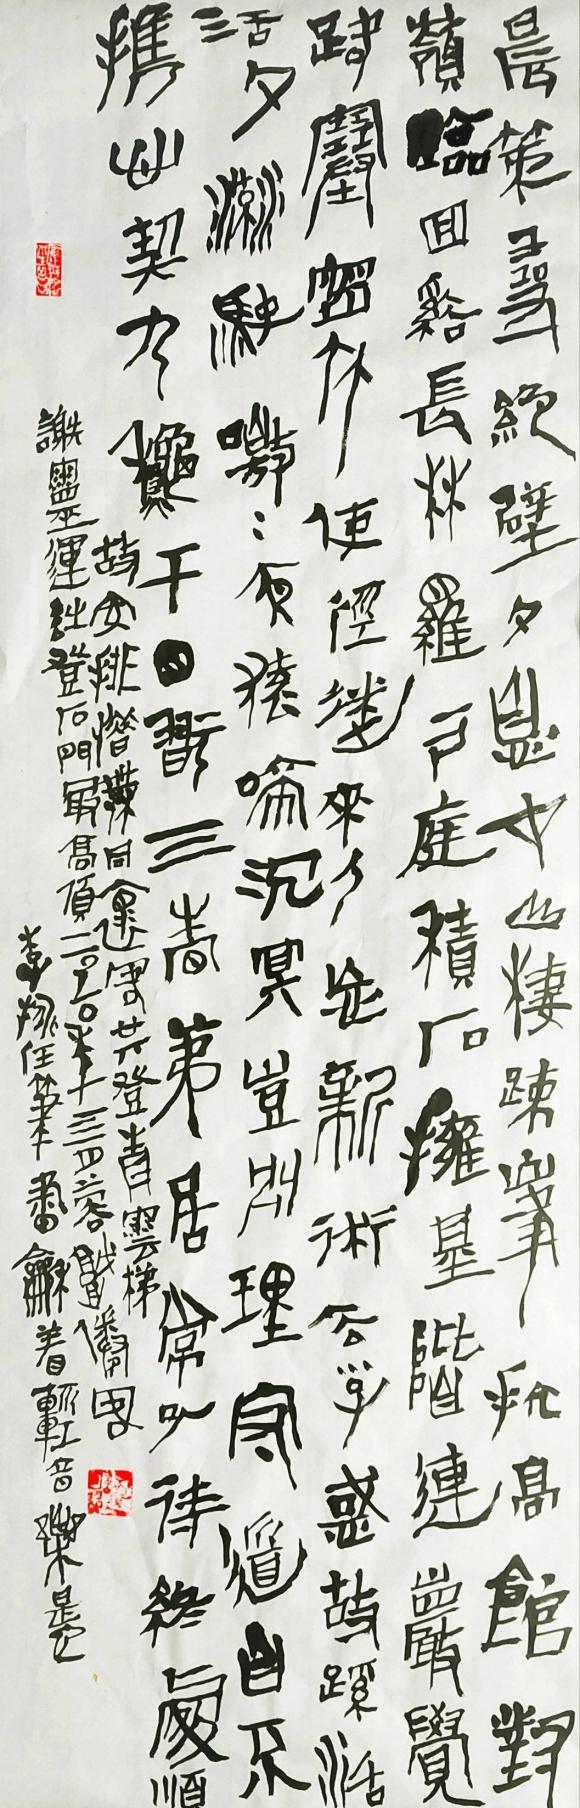 晨策尋絕壁夕息在山棲疎峯抗高館對
嶺臨回谿長林羅戶庭積石擁基階連巖覺
路塞密竹使徑迷來人忘新術去子惑故蹊活
活夕流駛噭〻夜猿啼沉冥豈別理守道自不
攜心契九秋幹目翫三春荑第居常以待終處順
故安排惜無同懷客共登青雲梯
謝靈運詩登石門最高頂二〇二〇年十
任筆書 着輕音樂是也